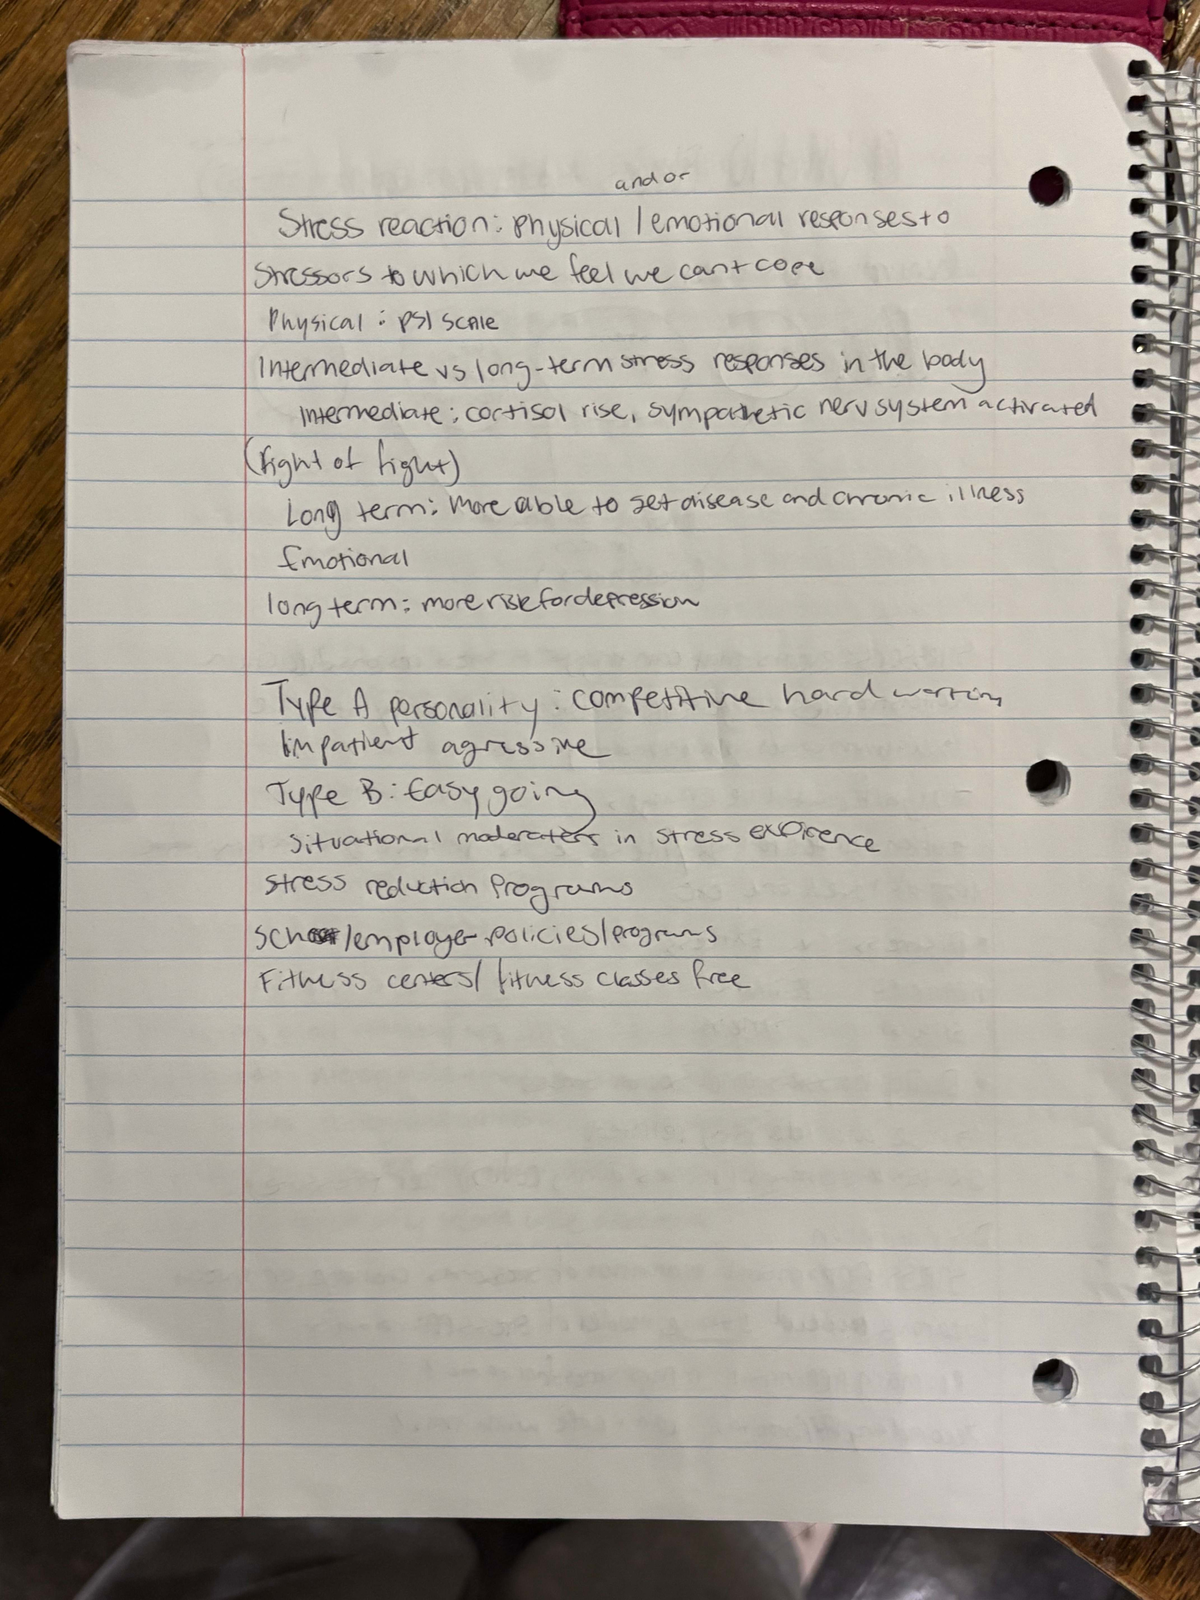 and or
Stress reaction: physical / emotional responses to
Stressors to which we feel we cant cope
Physical : PSI SCALE
Intermediate vs long-term stress responses in the body
Intermediate: cortisol rise, sympathetic nerv system activated
(fight of fight)
Long term: More able to get disease and chronic illness
Emotional
long term: more risk for depression
Type A personality: competitive hard working
impatient agressive
Type B: Easy going
situational moderaters in stress expirence
stress reduction programs
/employer policies/programs
Fitness centers/ fitness classes free